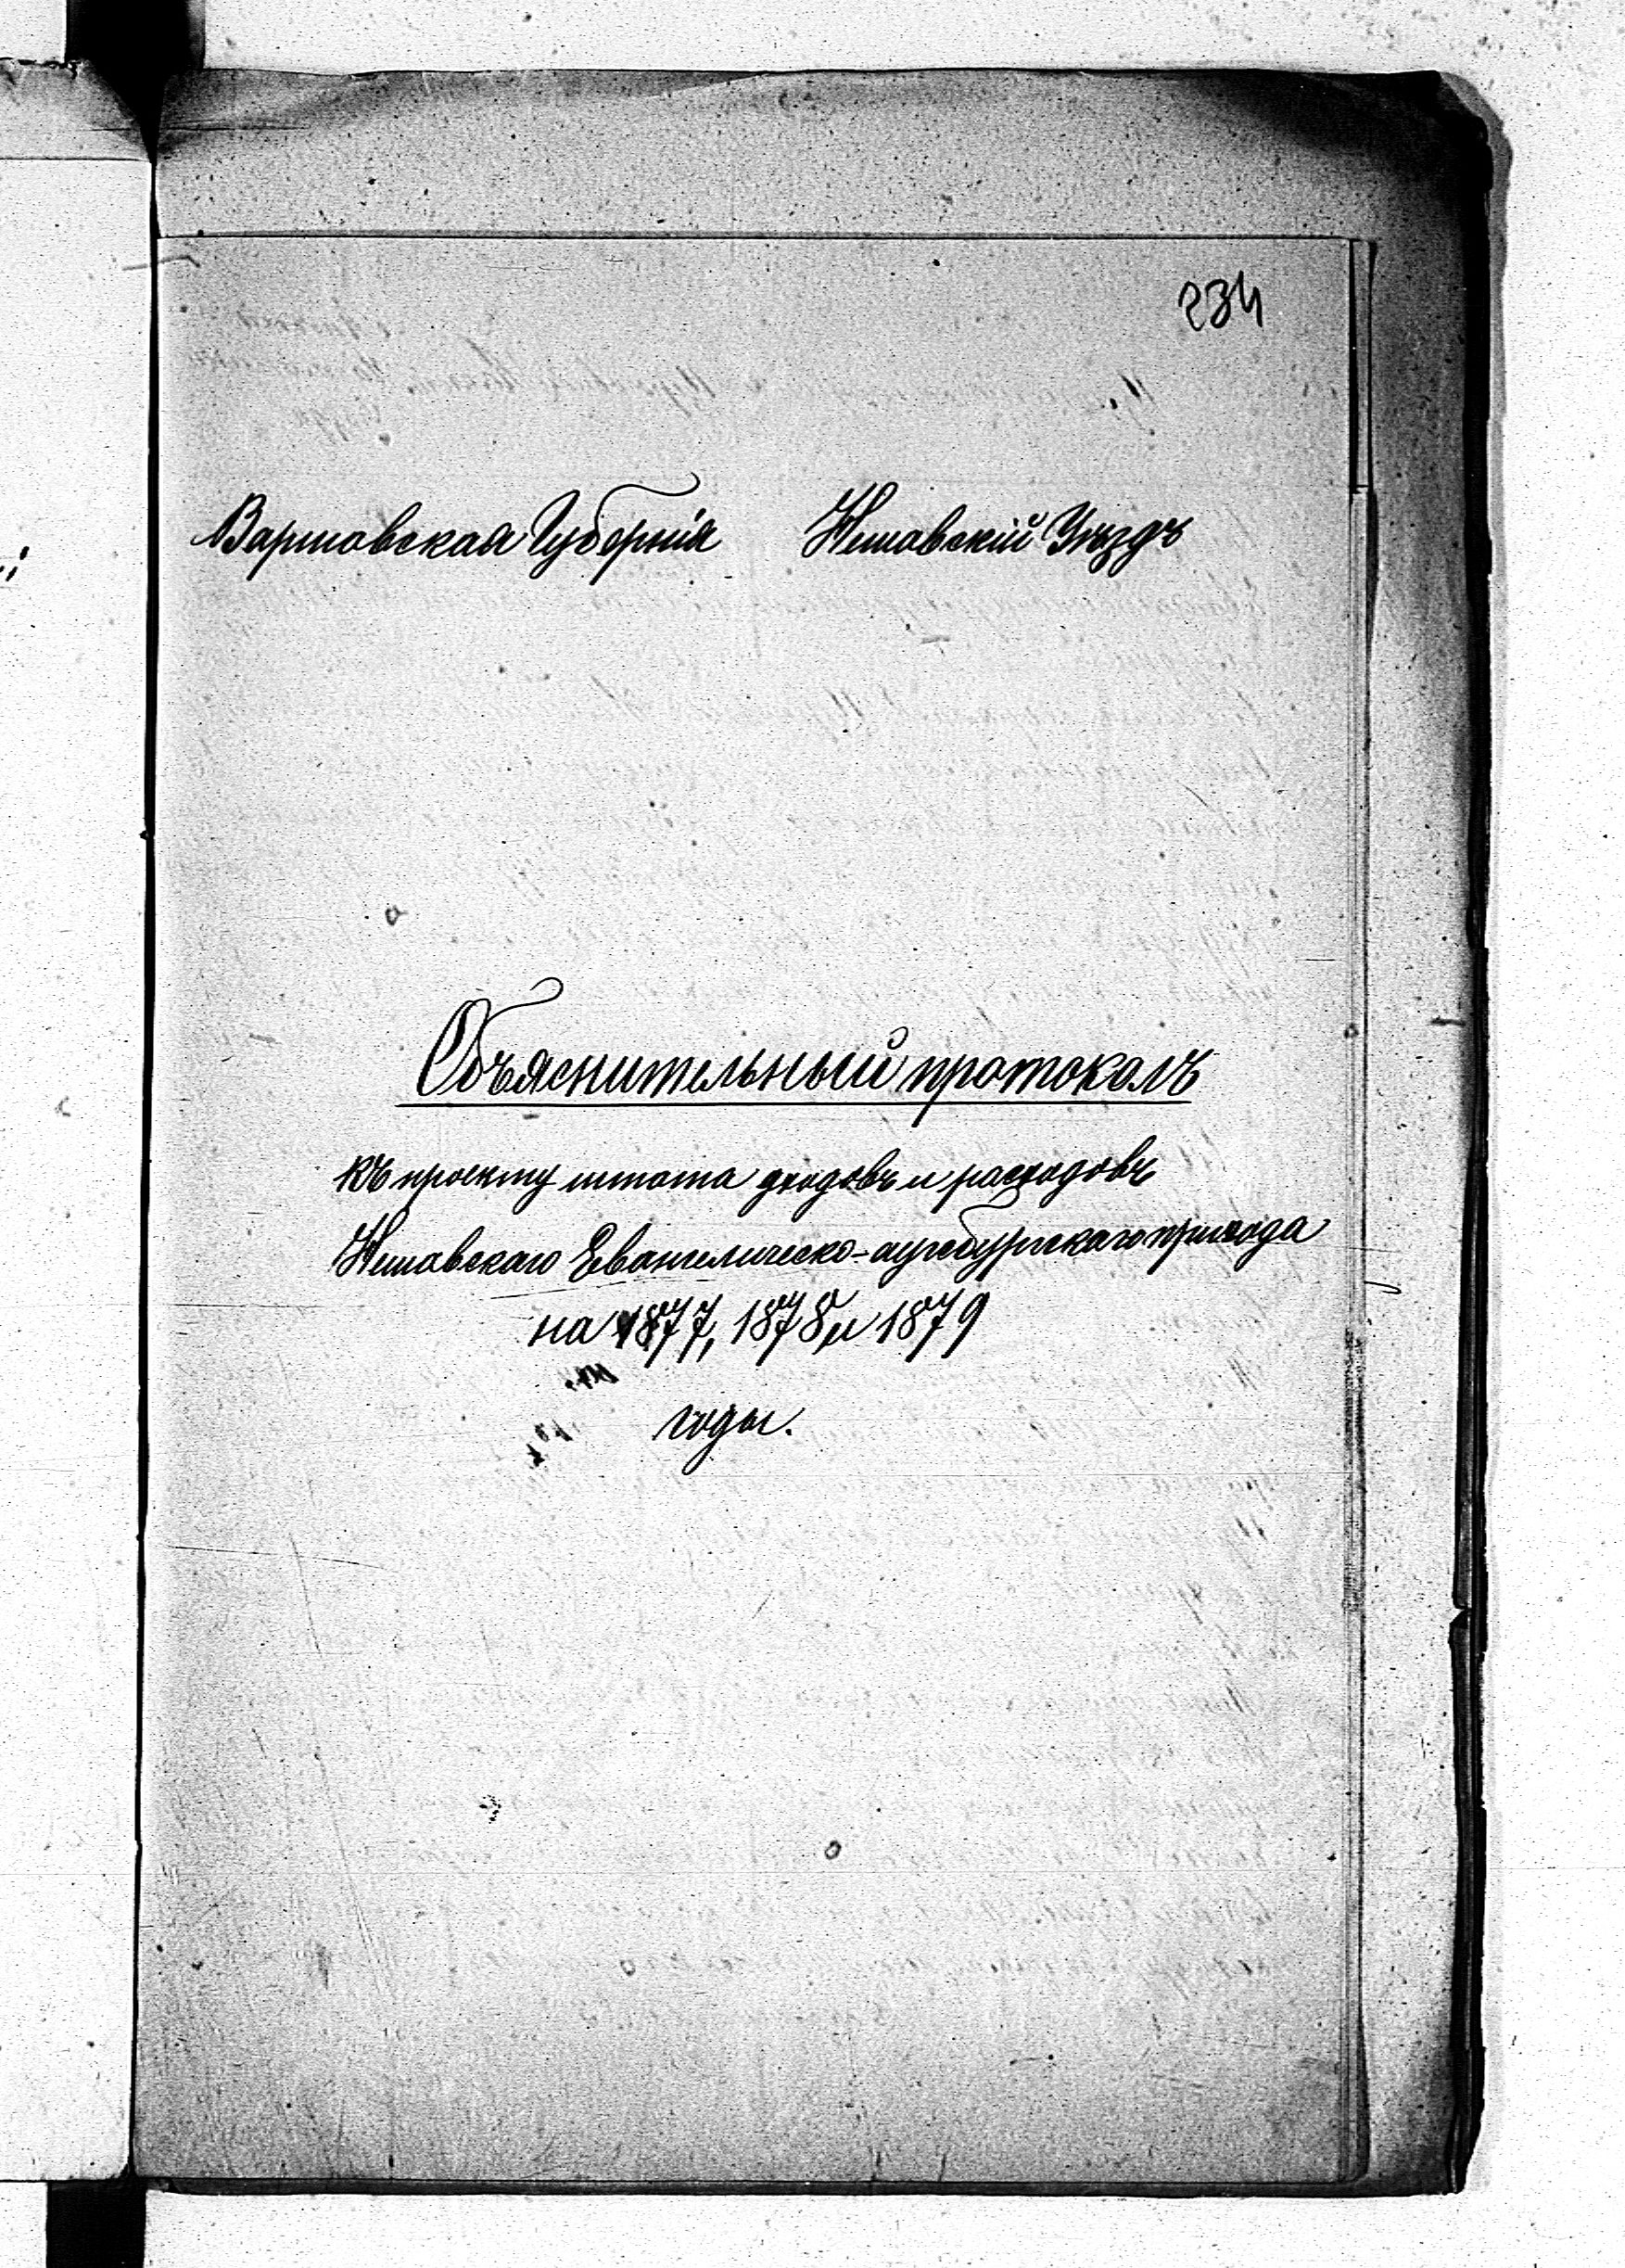 234
Варшавская Губернія Нешавскій Уѣздъ
Объяснительный протоколъ
къ проекту штата доходовъ и расходовъ
Нешавскаго Евангелическо-аугсбургскаго прихода
на 1877, 1878 и 1879
годы.